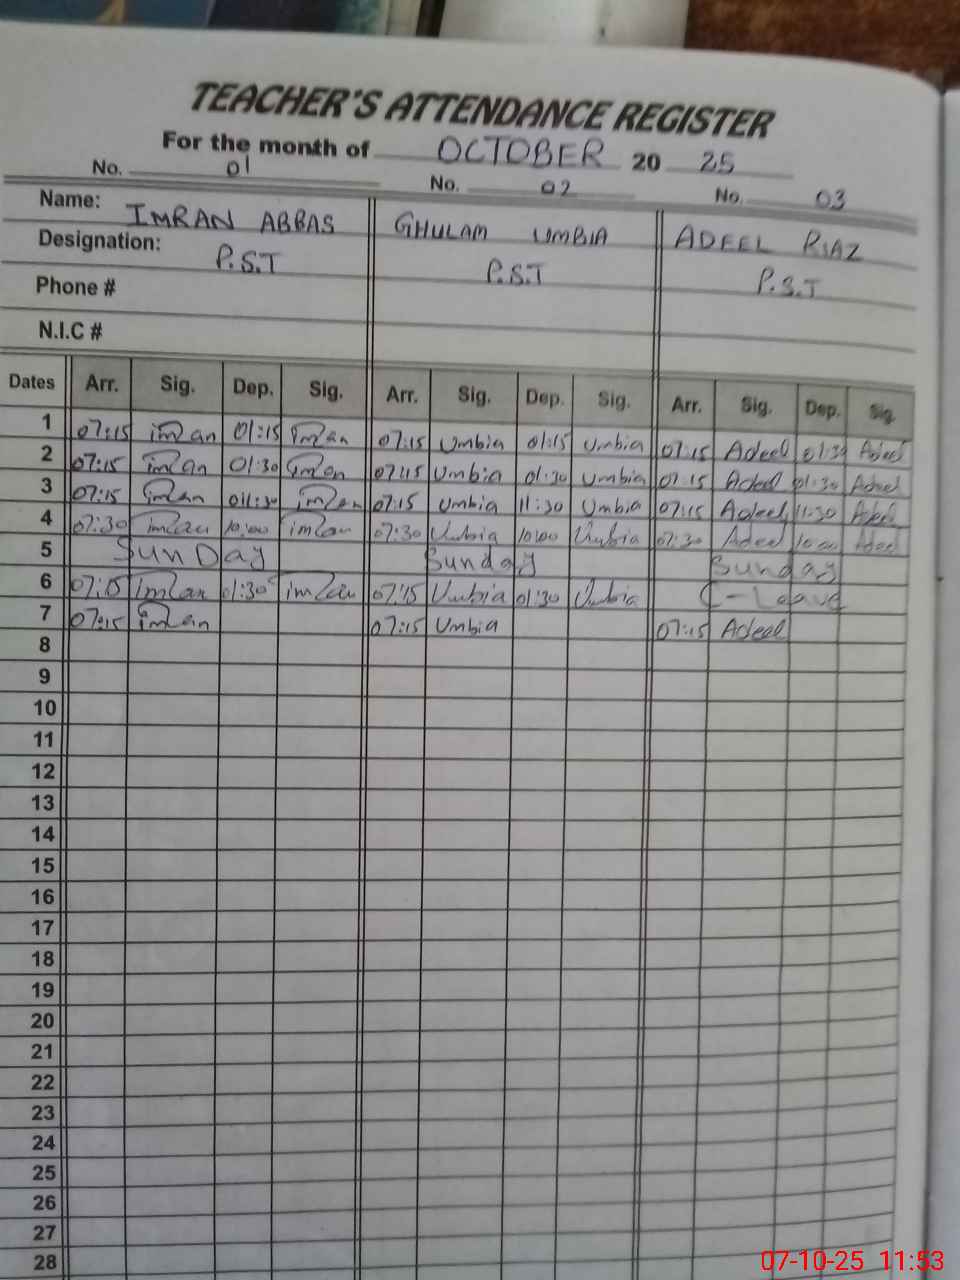 TEACHER'S ATTENDANCE REGISTER
For the month of OCTOBER 20 25
No. 01 No. 02 No. 03
Name: IMRAN ABBAS GHULAM UMBIA ADEEL RIAZ
Designation: P.S.T P.S.T P.S.T
Phone #
N.I.C #
Dates Arr. Sig. Dep. Sig. Arr. Sig. Dep. Sig. Arr. Sig. Dep. Sig.
1 07:15 imran 01:15 imran 07:15 Umbia 01:15 Umbia 07:15 Adeel 01:30 Adeel
2 07:15 imran 01:30 imran 07:15 Umbia 01:30 Umbia 07:15 Adeel 01:30 Adeel
3 07:15 imran 011:30 imran 07:15 Umbia 11:30 Umbia 07:15 Adeel 11:30 Adeel
4 07:30 imran 10:00 imran 07:30 Umbia 10:00 Umbia 07:30 Adeel 10:00 Adeel
5 Sunday Sunday Sunday
6 07:15 imran 01:30 imran 07:15 Umbia 01:30 Umbia C-Leave
7 07:15 imran 07:15 Umbia 07:15 Adeel
8
9
10
11
12
13
14
15
16
17
18
19
20
21
22
23
24
25
26
27
28
07-10-25 11:53